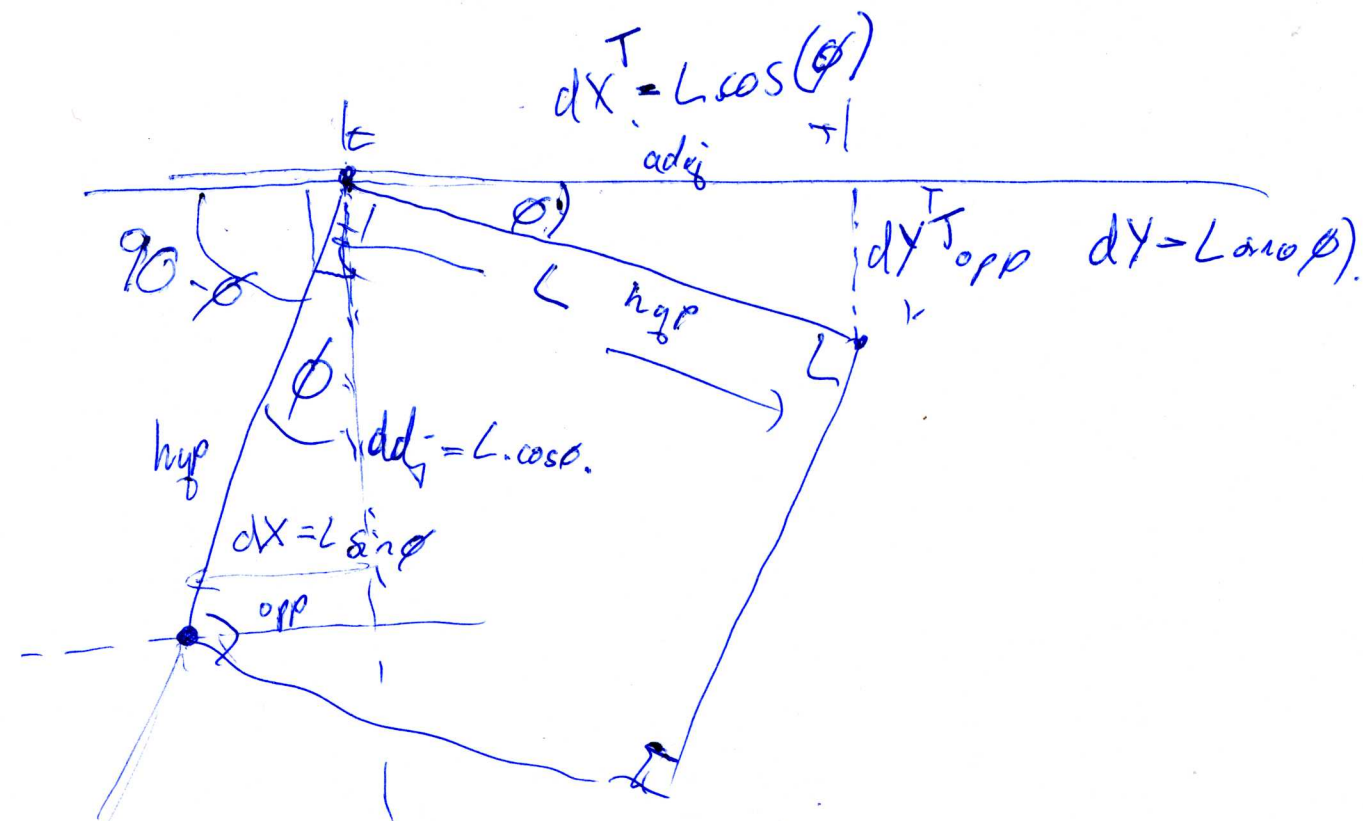 dX^T = L cos(φ)
t
adj
φ
90-φ
L
hyp
dY^T opp dY = L sin φ).
L
φ
hyp
adj = L.cosφ.
dX = L sin φ
opp